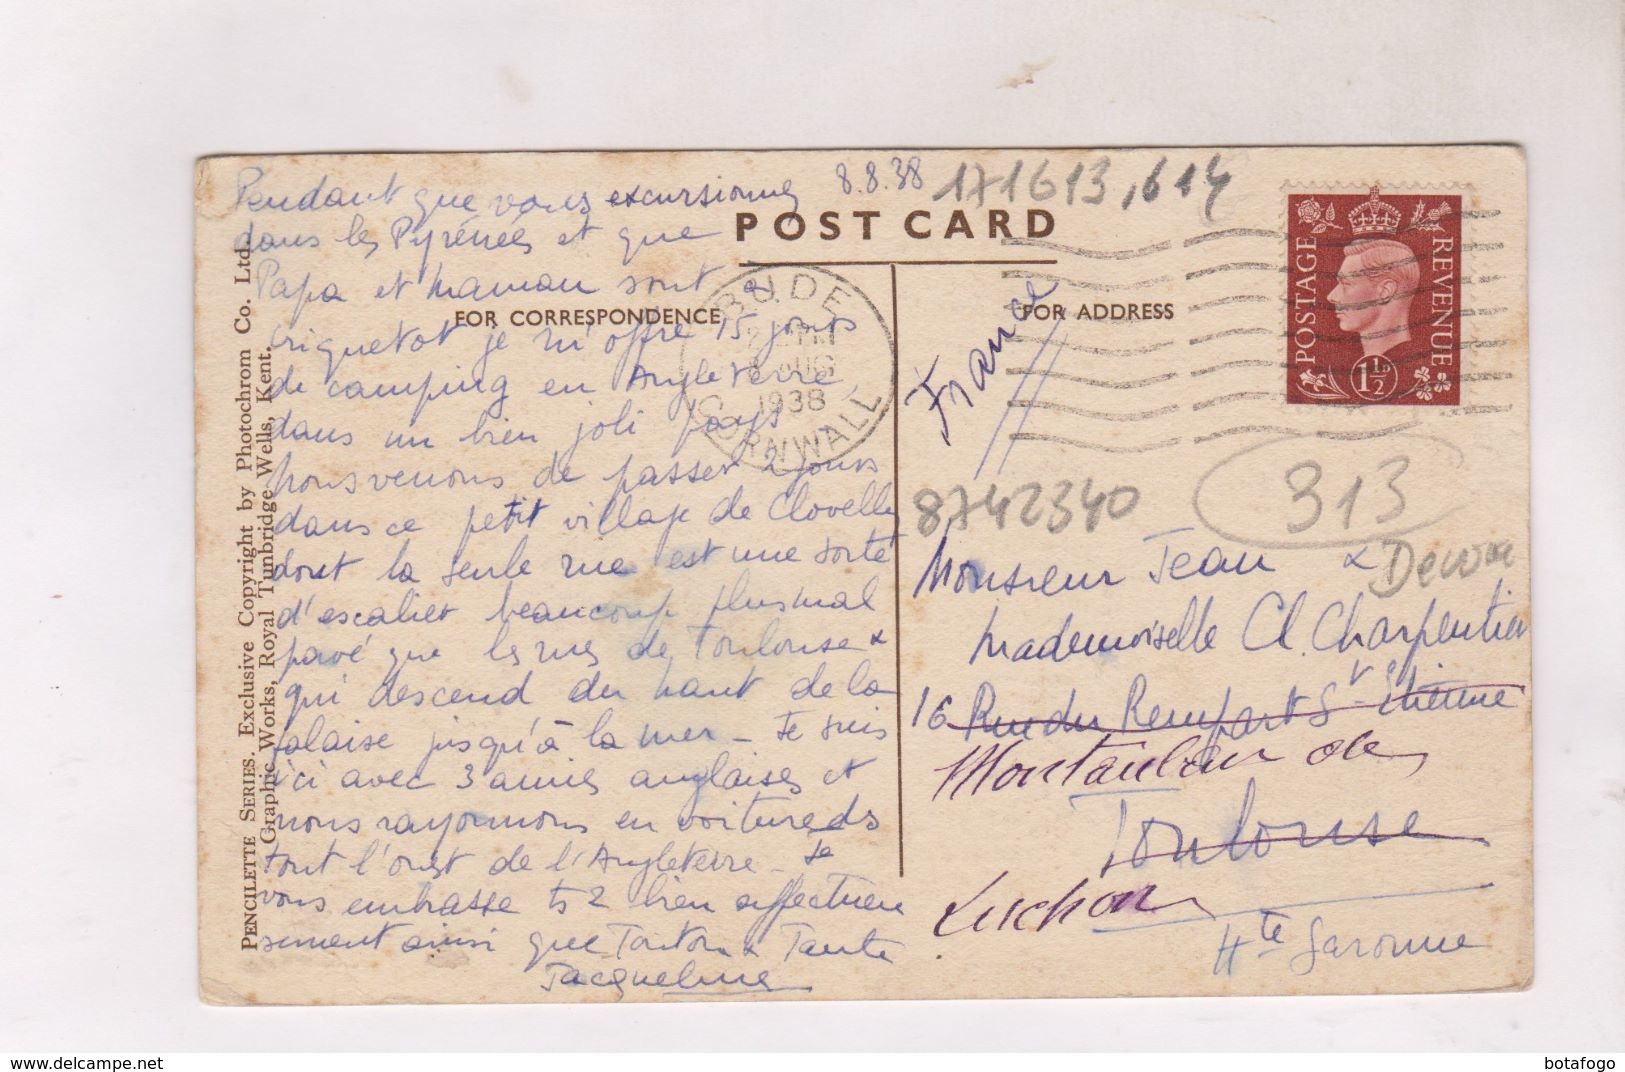 Pendant que vous excursionnez
8.8.38
171613,614
dans les Pyrénées et que
Papa et Maman sont à
Criquetot je m'offre 15 jours
de camping en Angleterre,
dans un bien joli pays
Nous venons de passer 2 jours
dans ce petit village de Clovelly
dont la seule rue est une sorte
d'escalier beaucoup plus mal
pavé que les rues de Toulouse &
qui descend du haut de la
falaise jusqu'à la mer - Je suis
ici avec 3 amies anglaises et
nous rayonnons en voiture ds
tout l'ouest de l'Angleterre - Je
vous embrasse ts 2 bien affectueu
sement ainsi que Tonton & Tante
Jacqueline
POST CARD
FOR CORRESPONDENCE
FOR ADDRESS
BUDE
AUG
1938
CORNWALL
POSTAGE
REVENUE
1½D
France
8742340
313
Devon
Monsieur Jean &
Mademoiselle Cl. Charpentier
16 Rue du Rempart St Etienne
Montauban de
Toulouse
Luchon
Hte Garonne
PENCILETTE SERIES. Exclusive Copyright by Photochrom Co. Ltd.
Graphic Works, Royal Tunbridge Wells, Kent.
www.delcampe.net
botafogo